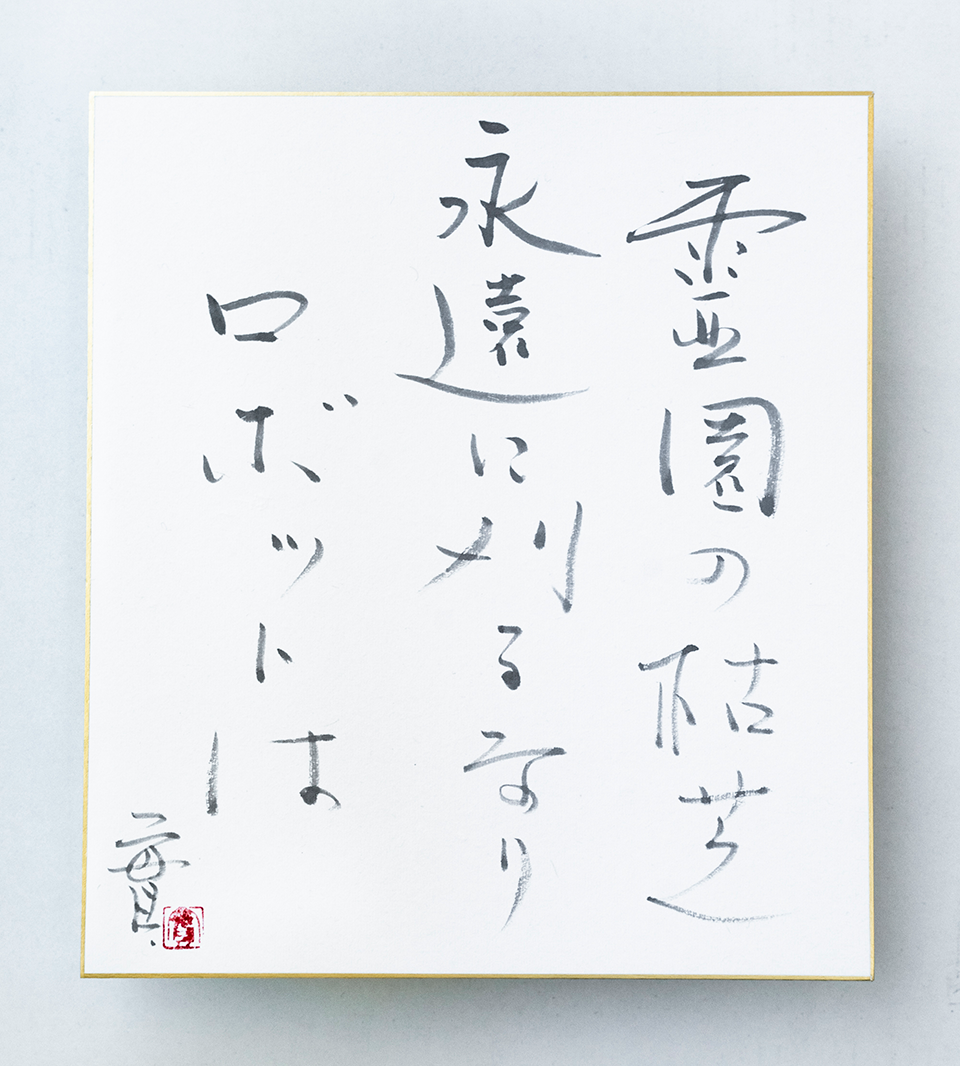 霊園の枯芝
永遠に刈るなり
ロボットは
實